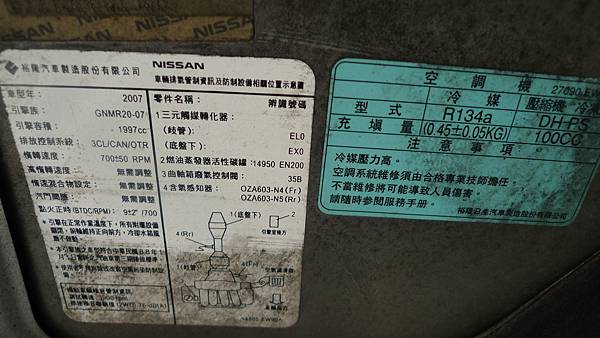 NISSAN
裕隆汽車製造股份有限公司 NISSAN
車輛排氣管制資訊及防制設備相關位置示意圖
車型年: 2007
引擎族: GNMR20-07
引擎容積: 1997cc
排放控制系統: 3CL/CAN/OTR
惰轉速度: 700±50 RPM
惰轉轉速: 無需調整
惰速混合物設定: 無需調整
汽門間隙: 無需調整
點火正時(BTDC/RPM): 9±2°/700
零件名稱: 辨識號碼
1三元觸媒轉化器:
(歧管): EL0
(底盤下): EX0
2燃油蒸發器活性碳罐:14950 EN200
3曲軸箱廢氣控制閥: 35B
4含氧感知器: OZA603-N4(Fr)
OZA603-N5(Rr)
1(底盤下)
2
4(Rr)
引擎室後方
1(歧管)
4(Fr)
空調機
27090 EW
冷媒
壓縮機
型式 R134a DH-PS
充填量 (0.45±0.05KG) 100CC
注意事項
冷媒壓力高。
空調系統維修須由合格專業技師擔任。
不當維修將可能導致人員傷害。
請隨時參閱服務手册。
裕隆日產汽車製造股份有限公司